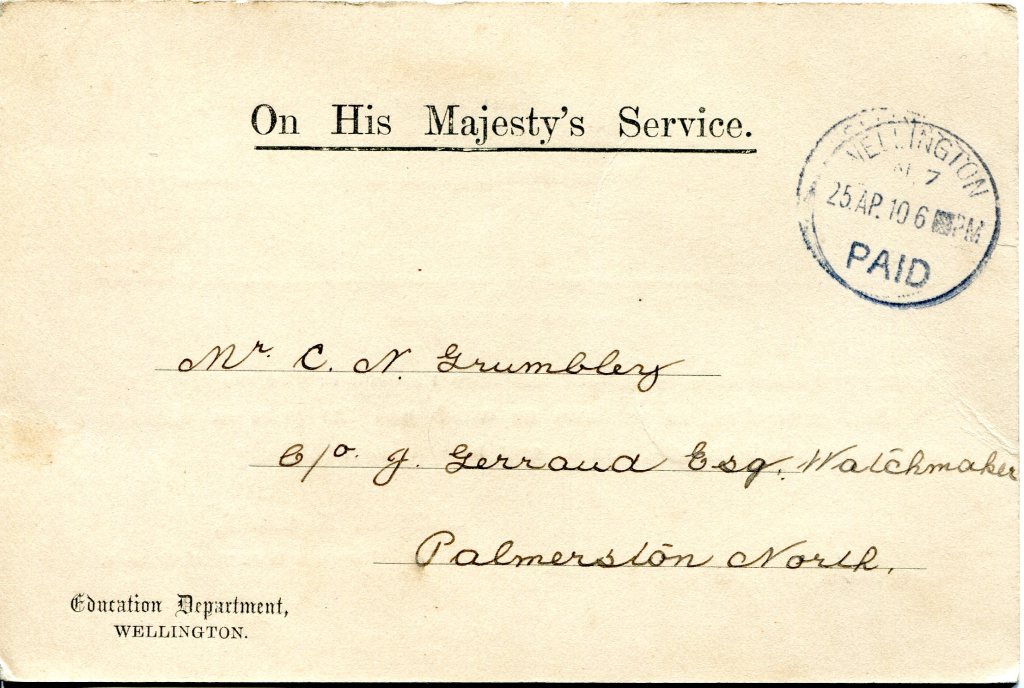 On His Majesty's Service.
WELLINGTON
7
25.AP.10 6 PM
PAID
Mr. C. N. Grumbley
C/o. J. Gerraud Esq. Watchmaker
Palmerston North.
Education Department,
WELLINGTON.